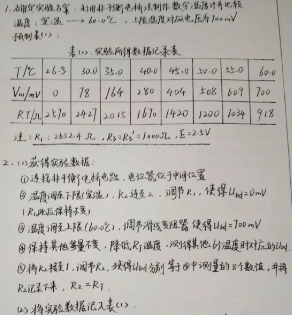 1. 确定实验方案: 利用非平衡电桥法制作数字温度计并比较
温度: 室温 → 60.0℃, 上限温度对应电压为700mV
预制表(1):
表(1). 实验所得数据记录表
T/℃ 26.3 30.0 35.0 40.0 45.0 50.0 55.0 60.0
Vm/mV 0 78 164 280 404 508 609 700
RT/Ω 2570 2427 2015 1670 1420 1200 1034 918
注: R1: 2832.4 Ω, R3=R3'=1000Ω, E=2.5V
2. (1) 获得实验数据:
① 连接非平衡电桥电路, 电位器位于中间位置
② 温度调至下限(室温), K2连至2, 调节R1, 使得Ubd=0mV
(R1此后保持不变)
③ 温度调至上限(60.0℃), 调节滑线变阻器 使得Ubd=700mV
④ 保持其他量不变, 降低RT温度, 测得其他6个温度时对应的Ubd
⑤ 将K2接至1, 调节R2, 获得Ubd分别等于④中测量的8个数值, 并将
R2记录下来, R2=RT
(2) 将实验数据记入表(1).